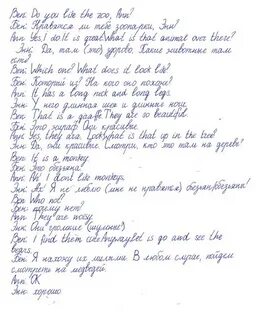 Ben: Do you like the zoo, Ann?
Бен: Нравятся ли тебе зоопарки, Энн?
Ann Yes, I do It is great What is that animal over there?
Энн: Да, там (это) здорово. Какие животные там
есть?
Ben: Which one? What does it look like?
Бен: Который из? На кого оно похоже?
Ann It has a long neck and long legs.
Энн У него длинная шея и длинные ноги.
Ben: That is a They are so beautiful
Бен Это жираф. Они красивые
Ann Yes, they are. Look what is that up in the tree?
Энн: Да, они красивые. Смотри, кто это там на дереве?
Ben It is a monkey
Бен Это обезьяна!
Ann Ah! I don't like monkeys.
Энн: Ах! Я не люблю (мне не нравятся)
Ben Why not?
Бен: почему нет?
Ann They are noisy
Энн Они громкие (шумные)
Ben: I find them Anyway let is go and see the
bears.
Бен Я нахожу их милыми В любом случае, пойдём
смотреть на медведей.
Ann OK
Энн: хорошо